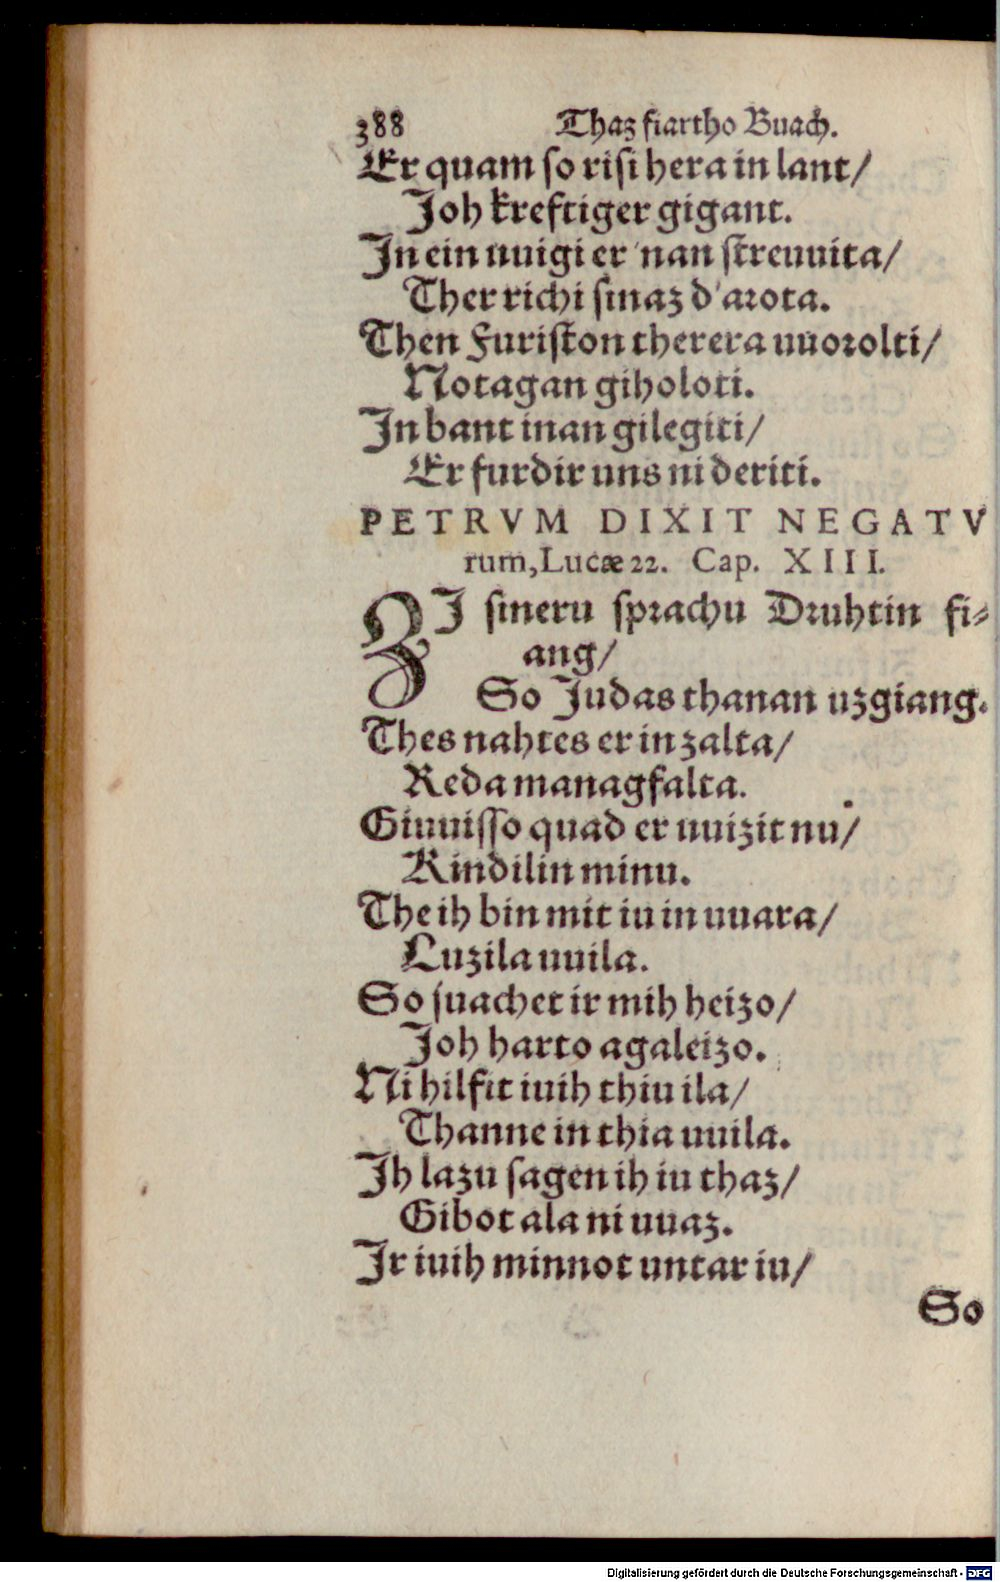 388 Thaz fiartho Buach.
Er quam so risi hera in lant/
Joh kreftiger gigant.
In ein uuigi er 'nan streuuita/
Ther richi sinaz d'arota.
Then Furiston therera uuorolti/
Notagan giholoti.
In bant inan gilegiti/
Er furdir uns ni deriti.
PETRVM DIXIT NEGATV
rum, Lucæ 22. Cap. XIII.
ZI sineru sprachu Druhtin fi-
ang/
So Judas thanan uzgiang.
Thes nahtes er in zalta/
Reda managfalta.
Giuuisso quad er uuizit nu/
Kindilin minu.
The ih bin mit iu in uuara/
Luzila uuila.
So suachet ir mih heizo/
Joh harto agaleizo.
Ni hilfit iuih thiu ila/
Thanne in thia uuila.
Ih lazu sagen ih iu thaz/
Gibot ala ni uuaz.
Ir iuih minnot untar iu/
So
Digitalisierung gefördert durch die Deutsche Forschungsgemeinschaft - DFG